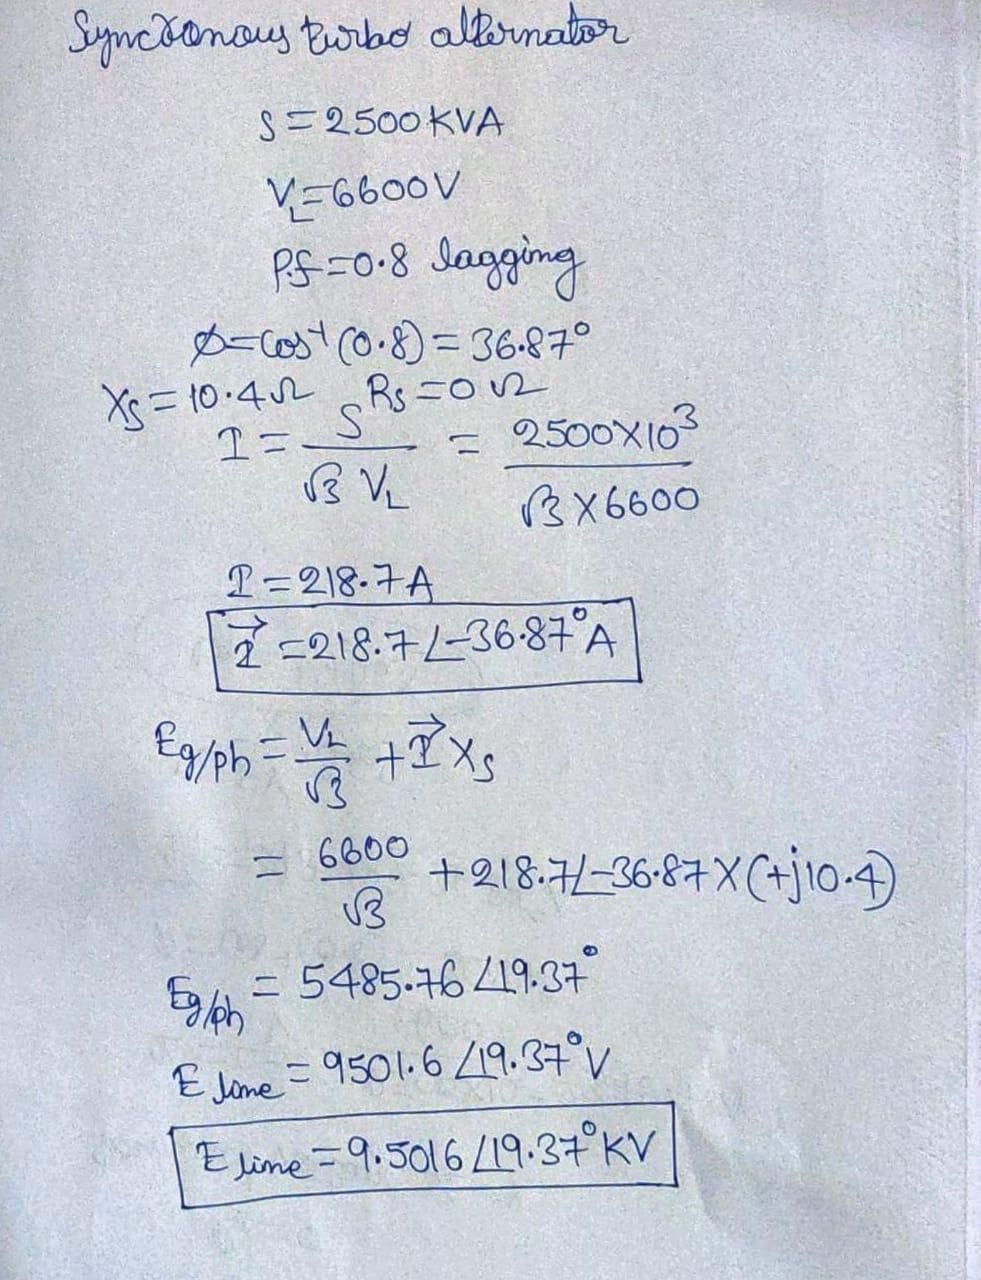 Syncronous turbo alternator
S=2500KVA
V_L=6600V
P.f=0.8 lagging
Ø=Cos⁻¹(0.8)=36.87°
Xs=10.4Ω Rs=0Ω
I = S / √3 V_L = 2500×10³ / √3×6600
I=218.7A
I⃗ =218.7∠-36.87°A
Eg/ph = V_L/√3 + I⃗ Xs
= 6600/√3 +218.7∠-36.87×(+j10.4)
Eg/ph = 5485.76∠19.37°
E line = 9501.6∠19.37°V
E line =9.5016∠19.37°KV